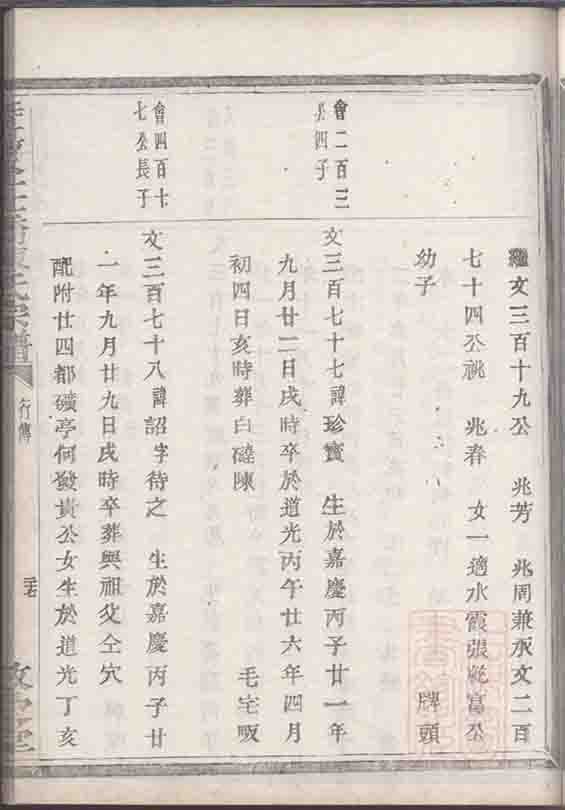 繼文三百十九公　兆芳　兆周兼承文二百
七十四公祧　兆春　女一適水霞張　富公
幼子　牌頭
會二百三
公四子
文三百七十七諱珍寶　生於嘉慶丙子廿一年
九月廿二日戌時卒於道光丙午廿六年四月
初四日亥時葬白礳陳　毛宅畈
會四百七十
七公長子
文三百七十八諱詔字待之　生於嘉慶丙子廿
一年九月廿九日戌時卒葬與祖父仝穴
配附廿四都礦亭何發貴公女生於道光丁亥
宗譜
行傳